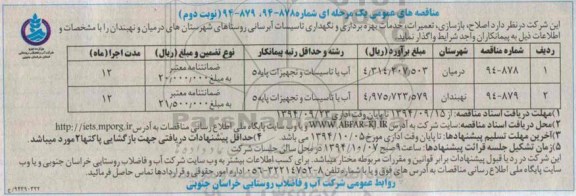 مناقصه های عمومی یک مرحله ای شماره ۸۷۸-۹۴، ۸۷۹-۹۴ (نوبت دوم)
این شرکت در نظر دارد اصلاح، بازسازی، تعمیرات، خدمات بهره برداری و نگهداری تاسیسات آبرسانی روستاهای شهرستان های درمیان و نهبندان را با مشخصات و
اطلاعات ذیل به پیمانکاران واجد شرایط واگذار نماید.
ردیف شماره مناقصه شهرستان مبلغ برآورد (ریال) رشته و حداقل رتبه پیمانکار نوع تضمین و مبلغ (ریال) مدت اجرا (ماه)
۱ ۹۴-۸۷۸ درمیان ۴/۳۱۴/۲۰۷/۵۰۳ آب یا تاسیسات و تجهیزات پایه ۵ ضمانتنامه معتبر به مبلغ ۲۰/۰۰۰/۰۰۰ ۱۲
۲ ۹۴-۸۷۹ نهبندان ۴/۹۷۵/۷۲۳/۵۷۹ آب یا تاسیسات و تجهیزات پایه ۵ ضمانتنامه معتبر به مبلغ ۲۱/۵۰۰/۰۰۰ ۱۲
۱) مهلت دریافت اسناد مناقصه: از ۱۳۹۴/۰۹/۱۵ تا پایان وقت اداری ۱۳۹۴/۰۹/۲۲
۲) محل دریافت اسناد مناقصه: سایت شرکت به آدرس WWW.ABFAR-KJ.IR و یا وب سایت پایگاه ملی اطلاع رسانی مناقصات به آدرس http://iets.mporg.ir
۳) آخرین مهلت تسلیم پیشنهادها: تا پایان وقت اداری مورخ ۱۳۹۴/۱۰/۰۵ می باشد. ۴) حداقل پیشنهادات دریافتی جهت بازگشایی پاکتها ۲ مورد میباشد.
۵) زمان تشکیل جلسه قرائت پیشنهادها: ساعت ۹ صبح ۱۳۹۴/۱۰/۰۷ در محل سالن جلسات شرکت
این شرکت در رد یا قبول پیشنهادات برابر قوانین و مقررات مربوطه مختار میباشد. برای کسب اطلاعات بیشتر به وب سایت شرکت آب و فاضلاب روستایی خراسان جنوبی و یا وب
سایت پایگاه ملی اطلاع رسانی مناقصات به آدرس های فوق و یا با شماره تلفن ۸-۳۲۲۱۴۷۵۲-۰۵۶ اداره امور حقوقی و قراردادها تماس حاصل فرمائید.
روابط عمومی شرکت آب و فاضلاب روستایی خراسان جنوبی